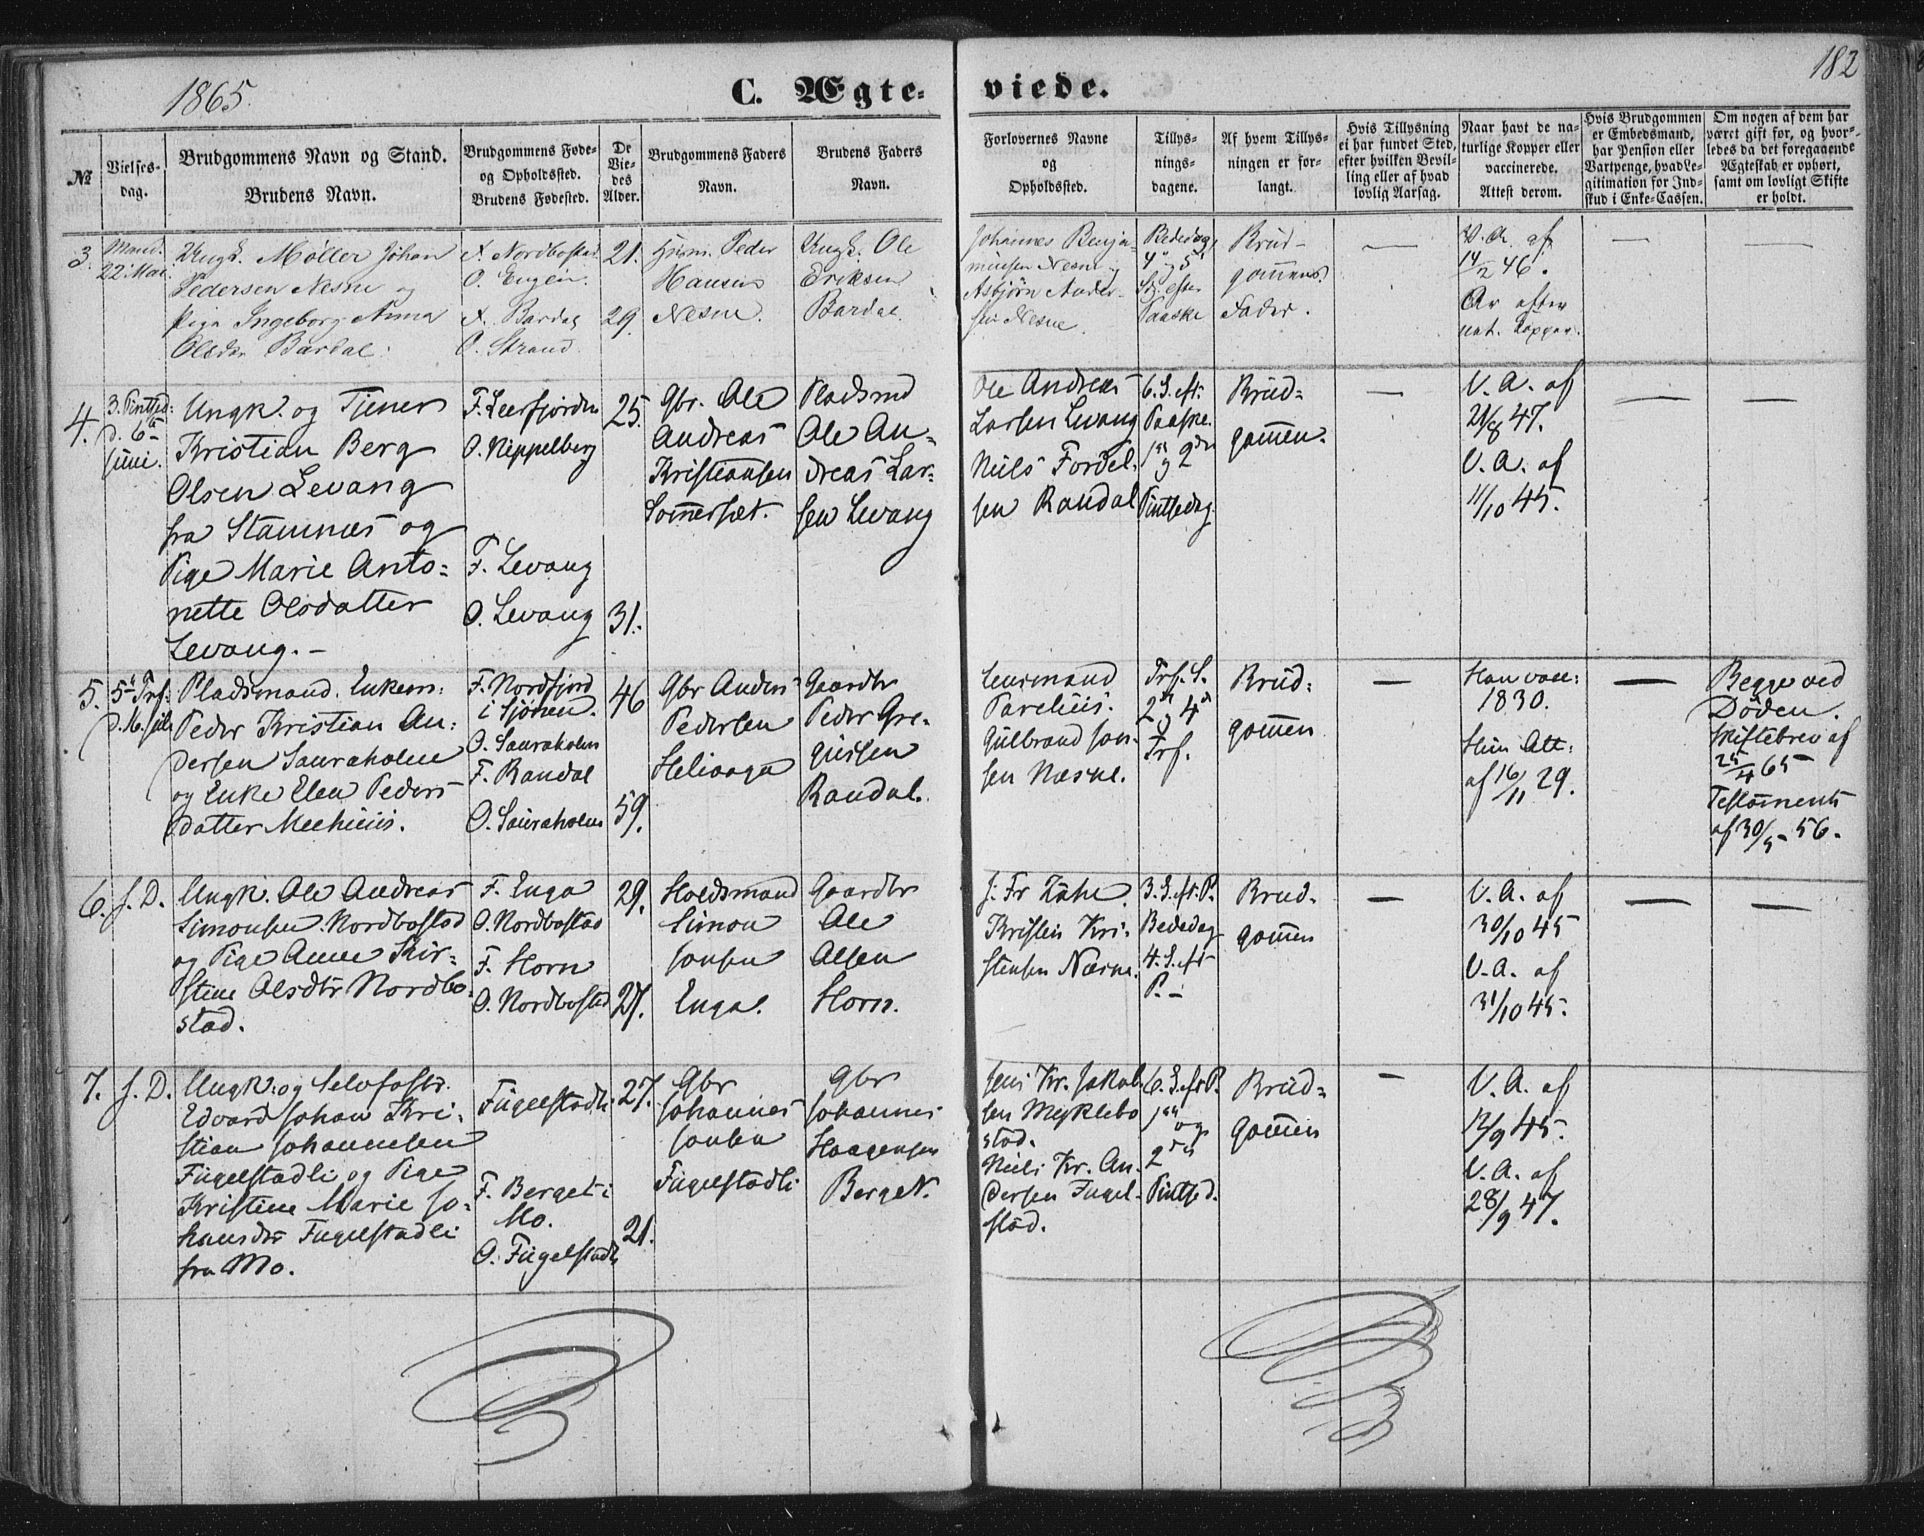 1865.
C. Ægte-
viede.
182
№
Vielses-
dag.
Brudgommens Navn og Stand.
Brudens Navn.
Brudgommens Føde-
og Opholdssted.
Brudens Fødested.
De
Vie-
des
Alder.
Brudgommens Faders
Navn.
Brudens Faders
Navn.
Forlovernes Navne
og
Opholdssted.
Tillys-
nings-
dagene.
Af hvem Tillys-
ningen er for-
langt.
Hvis Tillysning
ei har fundet Sted,
efter hvilken Bevil-
ling eller af hvad
lovlig Aarsag.
Naar havt de na-
turlige Kopper eller
vaccinerede.
Attest derom.
Hvis Brudgommen
er Embedsmand,
har Pension eller
Vartpenge, hvad Le-
gitimation for Ind-
skud i Enke-Cassen.
Om nogen af dem har
været gift før, og hvor-
ledes da det foregaaende
Ægteskab er ophørt,
samt om lovligt Skifte
er holdt.
3.
Mand.
22 Mai.
Ungk. Møller Johan
Pedersen Nesne og
Pige Ingeborg Anna
Olsdr Bardal.
F. Nordbostad
O. Engen.
F. Bardal
O. Strand.
21.
29.
Husm. Peder
Hansen
Nesne.
Ungk. Ole
Eriksen
Bardal.
Johannes Benja-
minsen Nesne og
Asbjørn Ander-
sen Nesne.
Bededag,
4 og 5
S. efter
Paaske
Brud-
gomens
Fader.
V. A. af
14/2 46.
Ar efter
nat. Kopper.
4.
3. Pintsd:
d. 6te
Juni.
Ungk. og Tjener
Kristian Berg
Olsen Levang
fra Stamnes og
Pige Marie Anto-
nette Olsdatter
Levang. –
F. Leerfjorden
O. Nippelberg
F. Levang
O. Levang
25.
31.
Gbr. Ole
Andreas
Kristiansen
Somersæt.
Pladsmd
Ole An-
dreas Lar-
sen Levang
Ole Andreas
Larsen Levang
Niels Fordel-
sen Randal
6. S. eft.
Paaske.
1ste og 2den
Pintsedag.
Brud-
gomen.
V. A. af
21/8 47.
V. A. af
11/10 45.
5.
5te Trf:
d. 16. Juli
Pladsmand. Enkem:
Peder Kristian An-
dersen Sauraholm
og Enke Elen Peders
datter Mechiiis.
F. Nordfjord
i Sjonen.
O. Sauraholm
F. Randal
O. Sauraholm
46
59.
Gbr Anders
Pedersen
Heliaaga
Gaardbr
Peder Gre-
giussen
Randal.
Lensmand
Pareliis.
Gulbrand Jon-
sen Næsne.
Trf. S.
2den og 4de
Trf.
Brud-
gomen
Han vacc:
1830.
Hun Att:
af 16/11 29.
Begge ved
Døden.
Skiftebrev af
25/4 65
Testament
af 30/5 56.
6.
s. D.
Ungk. Ole Andreas
Simonsen Nordbostad
og Pige Anne Kir-
stine Olsdtr Nordbo-
stad.
F. Enga
O. Nordbostad
F. Horn
O. Nordbostad
29.
27.
Holdsmand
Simon
Jonsen
Enga.
Gaardbr
Ole
Olsen
Horn.
J. Fr Zahl.
Kristen Kri-
stensen Næsne.
3. S. eft. P.
Bededag
4. S. eft
P. –
Brud-
gomen
V. A. af
30/10 45
V. A. af
31/10 45.
7.
s. D.
Ungk. og Selvfostr.
Edvard Johan Kri-
stian Johannesen
Fugelstadli og Pige
Kristine Marie Jo-
hansdtr Fugelstadli
fra Mo.
Fugelstadli
F. Berget i
Mo.
O. Fugelstadli
27.
21.
Gbr
Johannes
Jonsen
Fugelstadli
Gbr
Johannes
Haagensen
Berget.
Jens Kr. Jakob-
sen Myklebo
stad.
Niels Kr. An-
dersen Fugel-
stad.
6. S. eft P.
1ste og
2den
Pintsed.
Brud-
gomen
V. A. af
12/9 45.
V. A. af
28/9 47.